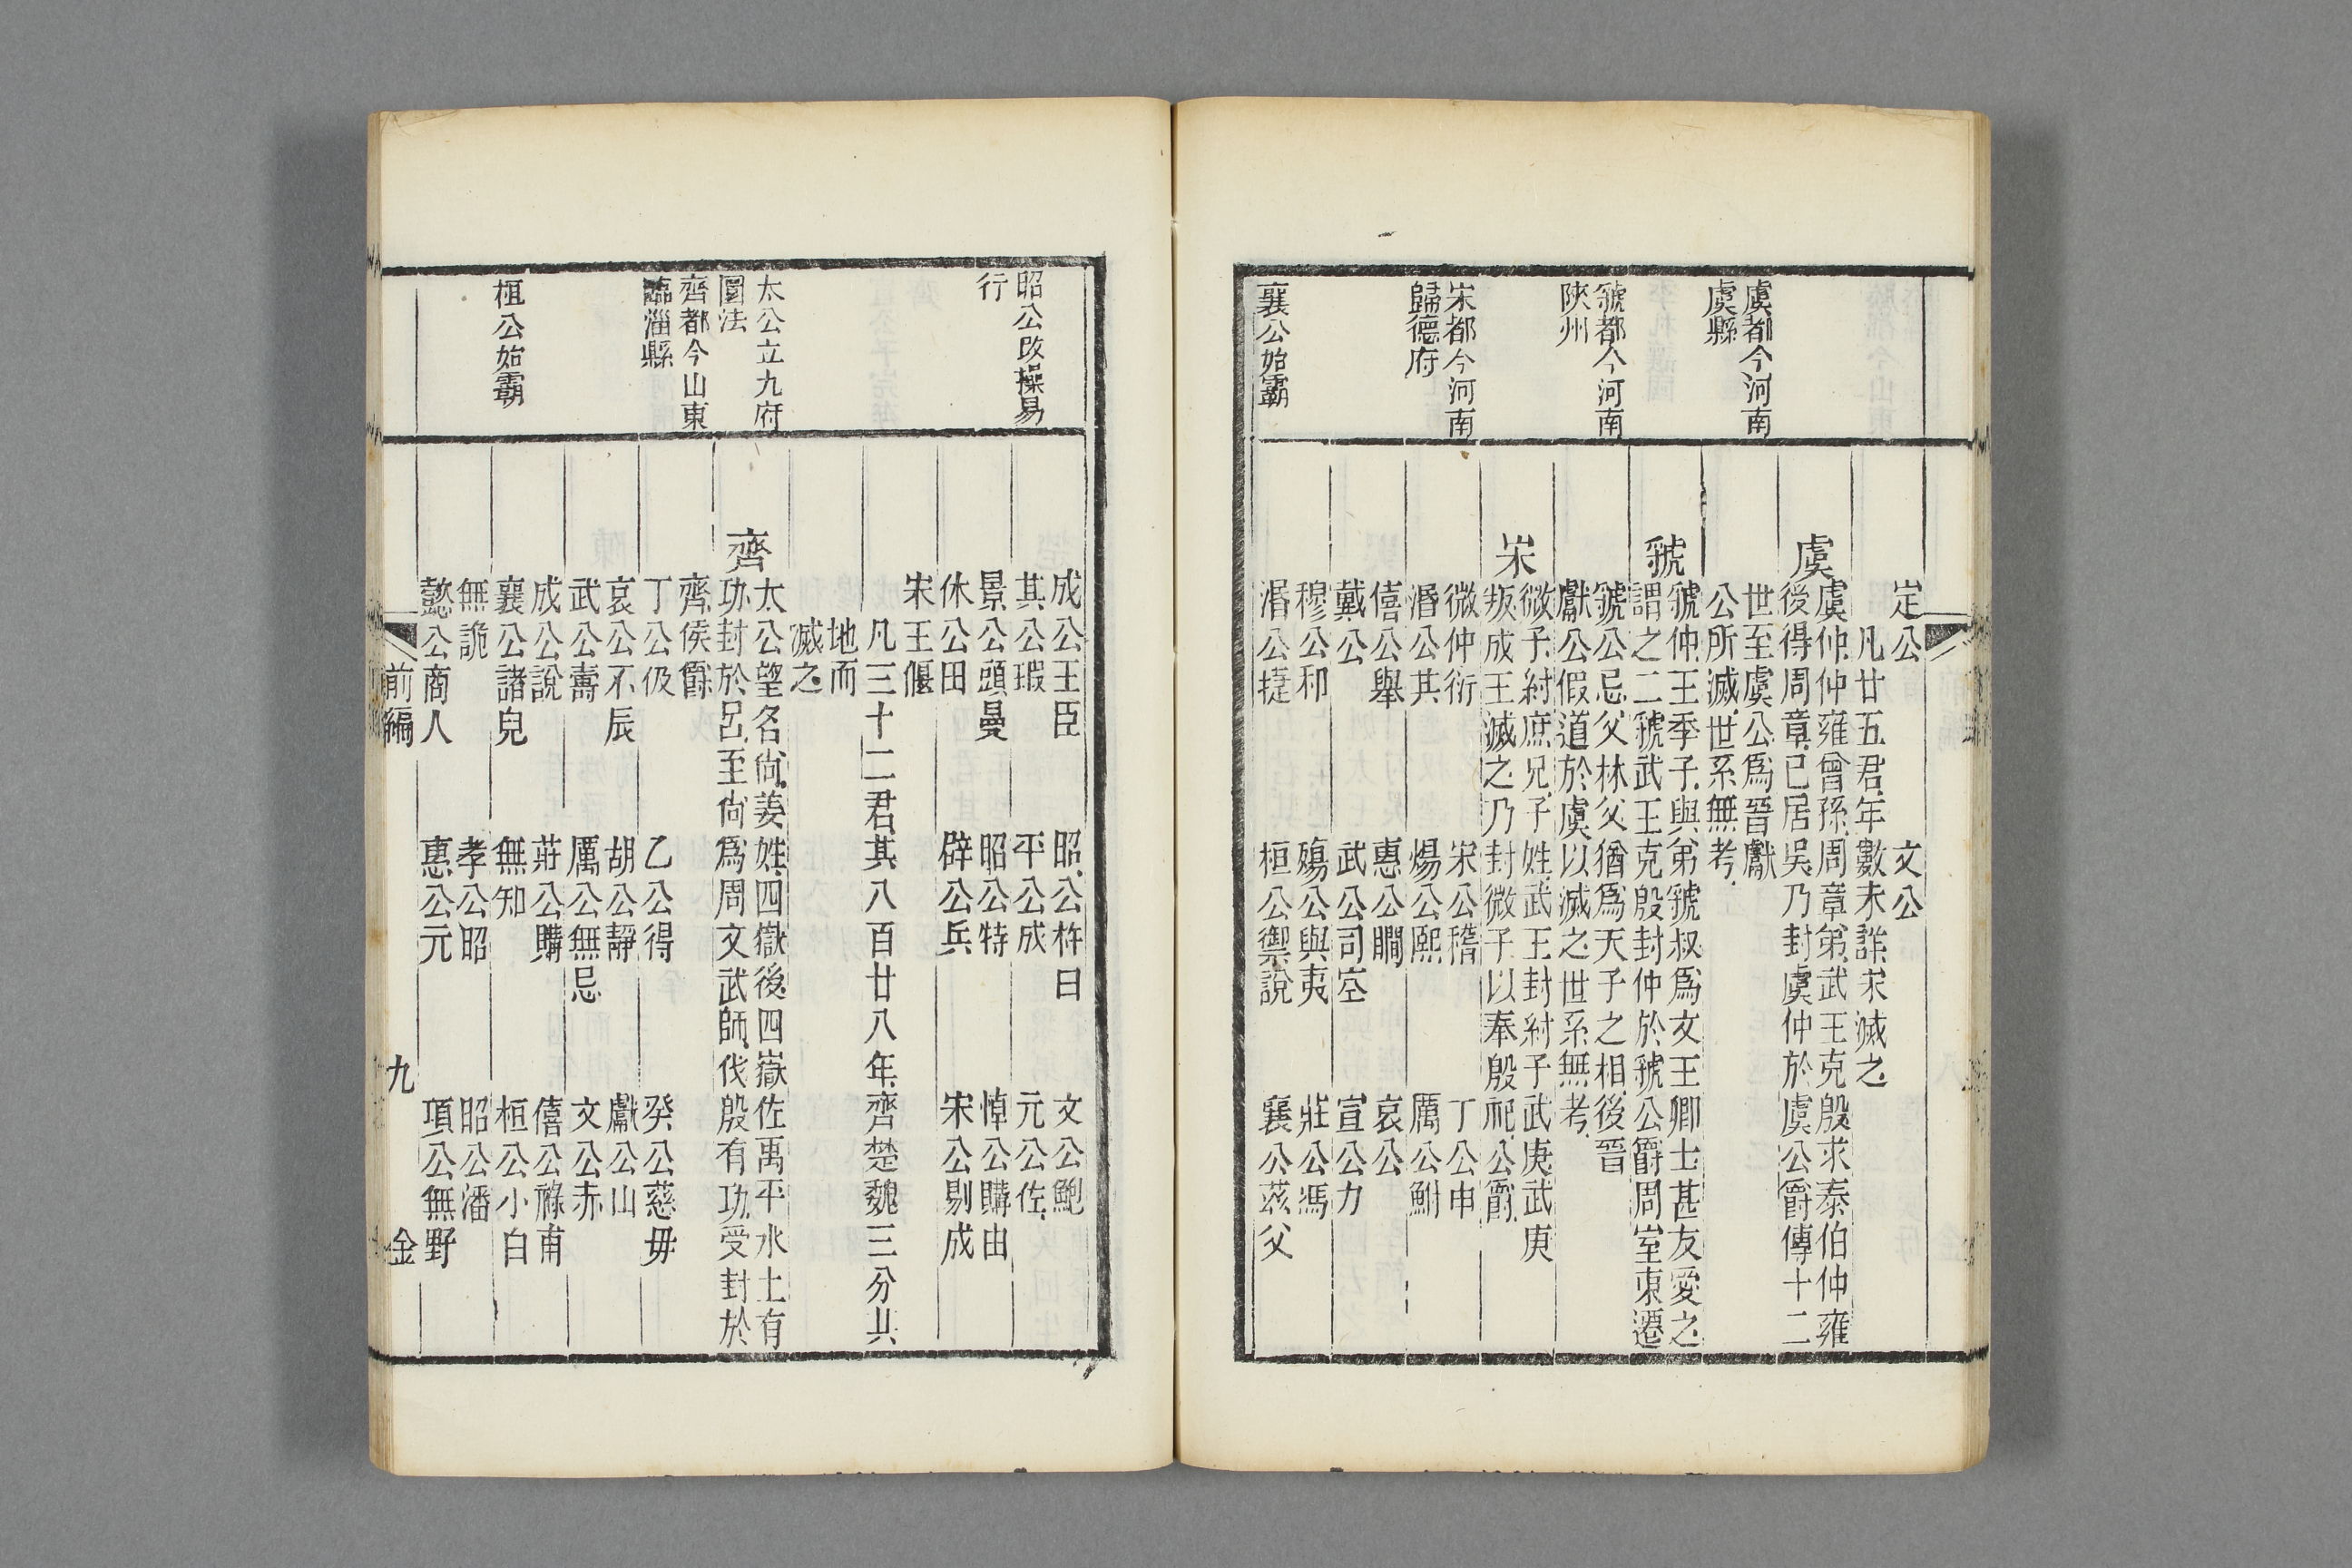 虞都今河南
虞縣
虢都今河南
陝州
宋都今河南
歸德府
襄公始霸
定公 文公
凡廿五君年數未詳宋滅之
虞
虞仲仲雍曾孫周章弟武王克殷求泰伯仲雍
後得周章已居吳乃封虞仲於虞公爵傳十二
世至虞公爲晉獻
公所滅世系無考
虢
虢仲王季子與弟虢叔爲文王卿士甚友愛之
謂之二虢武王克殷封仲於虢公爵周室東遷
虢公忌父林父猶爲天子之相後晉
獻公假道於虞以滅之世系無考
宋
微子紂庶兄子姓武王封紂子武庚武庚
叛成王滅之乃封微子以奉殷祀公爵
微仲衍 宋公稽 丁公申
湣公其 煬公熙 厲公鮒
僖公舉 惠公覸 哀公
戴公 武公司空 宣公力
穆公和 殤公與夷 莊公馮
湣公捷 桓公禦說 襄公茲父
昭公改操易
行
太公立九府
圜法
齊都今山東
臨淄縣
桓公始霸
成公王臣 昭公杵臼 文公鮑
其公瑕 平公成 元公佐
景公頭曼 昭公特 悼公購由
休公田 辟公兵 宋公剔成
宋王偃
凡三十二君其八百廿八年齊楚魏三分其
地而
滅之
齊
太公望名尙姜姓四嶽後四嶽佐禹平水土有
功封於呂至尙爲周文武師伐殷有功受封於
齊侯爵
丁公伋 乙公得 癸公慈毋
哀公不辰 胡公靜 獻公山
武公壽 厲公無忌 文公赤
成公說 莊公購 僖公祿甫
襄公諸兒 無知 桓公小白
無詭 孝公昭 昭公潘
懿公商人 惠公元 項公無野
前編 九 金